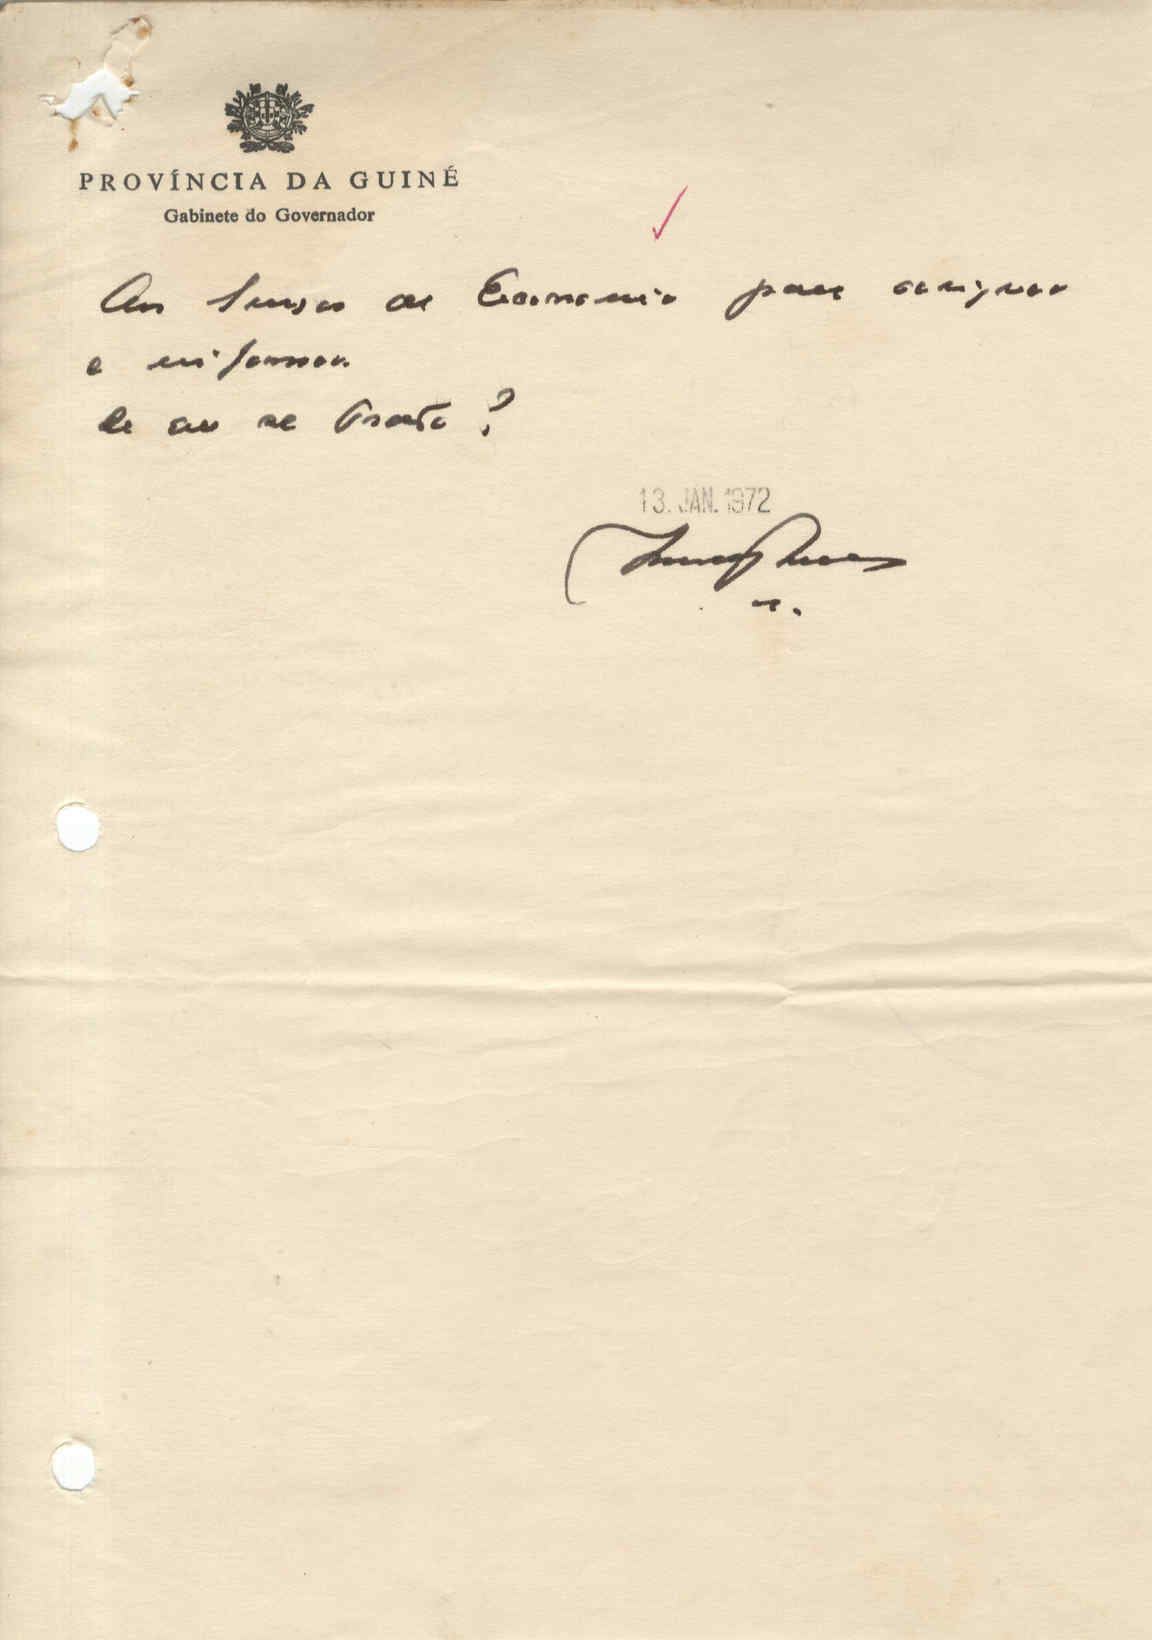 PROVÍNCIA DA GUINÉ
Gabinete do Governador
Aos Serviços de Economia para averiguar
e informar.
De que se trata?
13. JAN. 1972